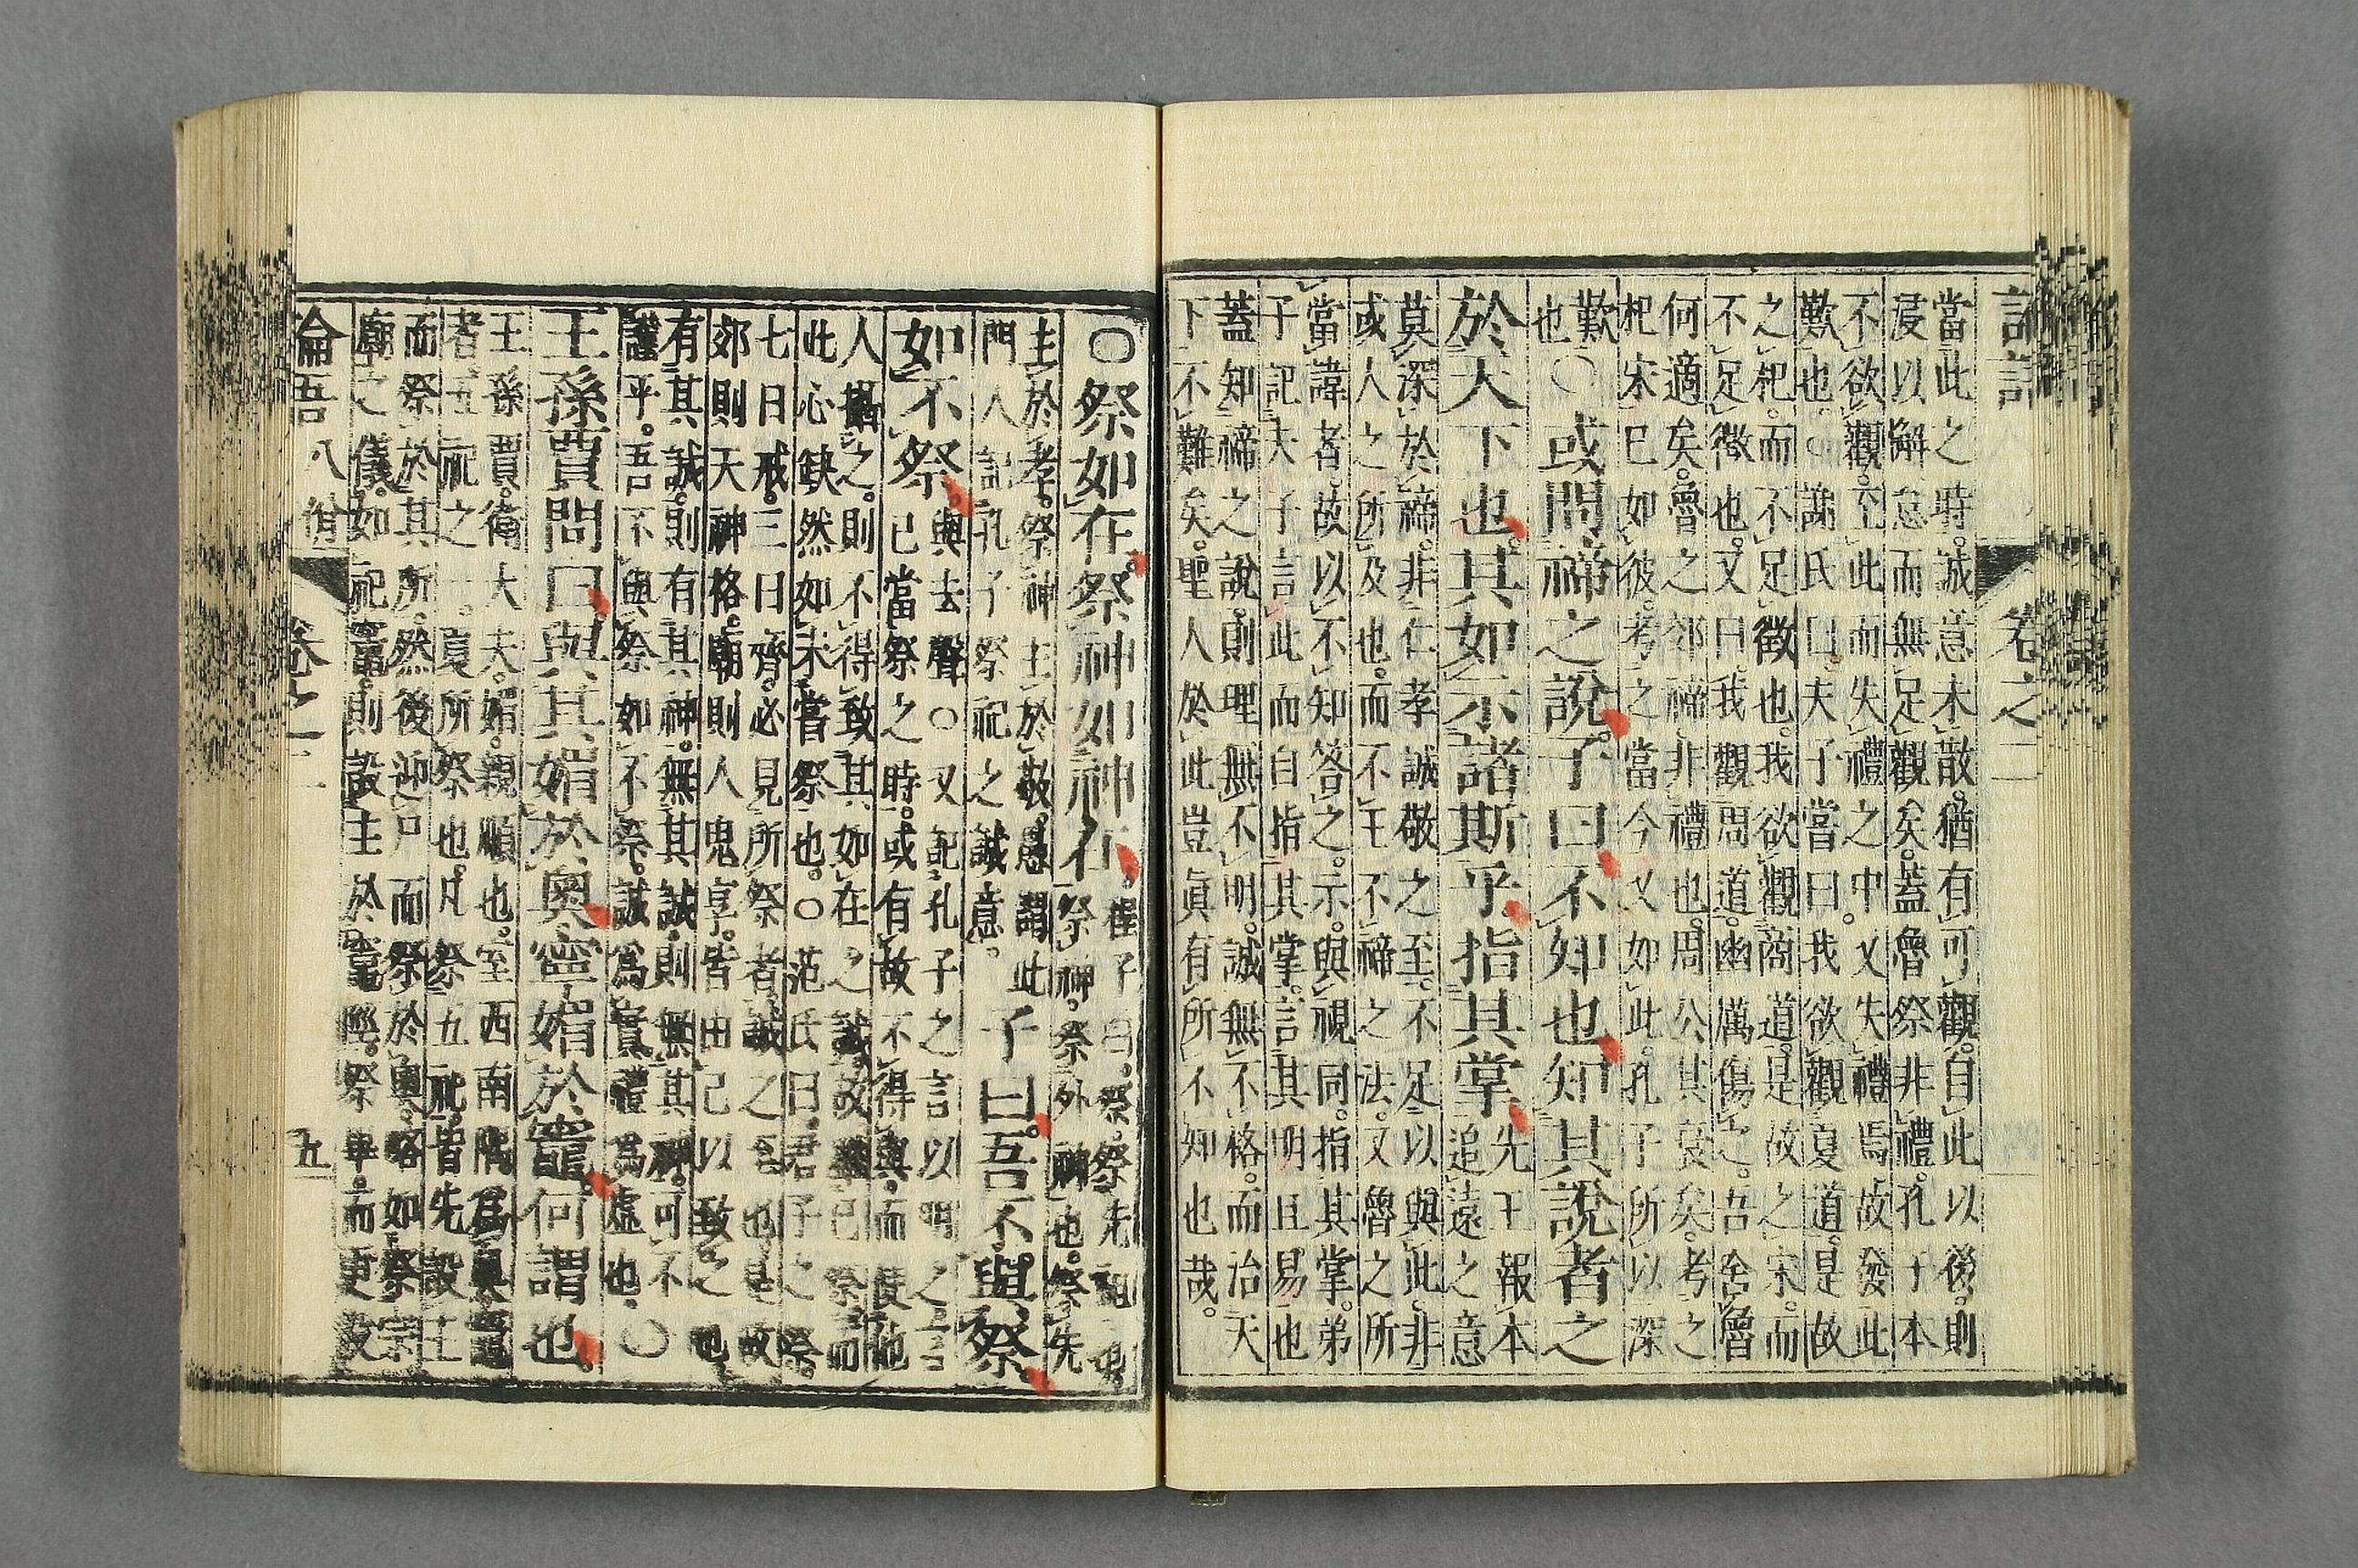 當此之時。誠意未散。猶有可觀。自此以後。則
浸以懈怠而無足觀矣。蓋魯祭非禮。孔子本
不欲觀。至此而失禮之中。又失禮焉。故發此
歎也。○謝氏曰。夫子嘗曰。我欲觀夏道。是故
之杞。而不足徵也。我欲觀商道。是故之宋。而
不足徵也。又曰。我觀周道。幽厲傷之。吾舍魯
何適矣。魯之郊禘。非禮也。周公其衰矣。考之
杞宋已如彼。考之當今又如此。孔子所以深
歎
也○或問禘之說。子曰。不知也。知其說者之
於天下也。其如示諸斯乎。指其掌。先王報本
追遠之意
莫深於禘。非仁孝誠敬之至。不足以與此。非
或人之所及也。而不王不禘之法。又魯之所
當諱者。故以不知答之。示。與視同。指其掌。弟
子記夫子言此而自指其掌。言其明且易也
蓋知禘之說。則理無不明。誠無不格。而治天
下不難矣。聖人於此豈眞有所不知也哉。
○祭如在。祭神如神在。程子曰。祭。祭先祖也
祭神。祭外神也。祭先
主於孝。祭神主於敬。愚謂此
門人記孔子祭祀之誠意。
子曰。吾不與祭。
如不祭。與去聲○又記孔子之言以明之。言
已當祭之時。或有故不得與。而使他
人攝之。則不得致其如在之誠。故雖已祭而
此心缺然如未嘗祭也。○范氏曰。君子之祭。
七日戒。三日齊。必見所祭者。誠之至也。是故
郊則天神格。廟則人鬼享。皆由己以致之也
有其誠。則有其神。無其誠。則無其神。可不
謹乎。吾不與祭如不祭。誠爲實禮爲虛也。○
王孫賈問曰。與其媚於奧。寧媚於竈。何謂也。
王孫賈。衛大夫。媚。親順也。室西南隅爲奧。竈
者。五祀之一。夏所祭也。凡祭五祀。皆先設主
而祭於其所。然後迎尸而祭於奧。略如祭宗
廟之儀。如祀竈。則設主於竈陘。祭畢。而更設
論吾 八佾 卷之二 五